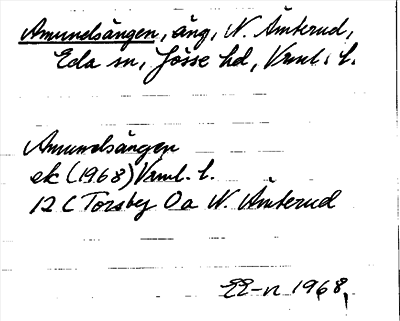 Amundsängen, äng, N. Åmterud,
Eda sn, Jösse hd, Vrml. l.
Amundsängen
ek (1968) Vrml. l.
12 C Torsby 0a N. Åmterud
EE-n 1968,